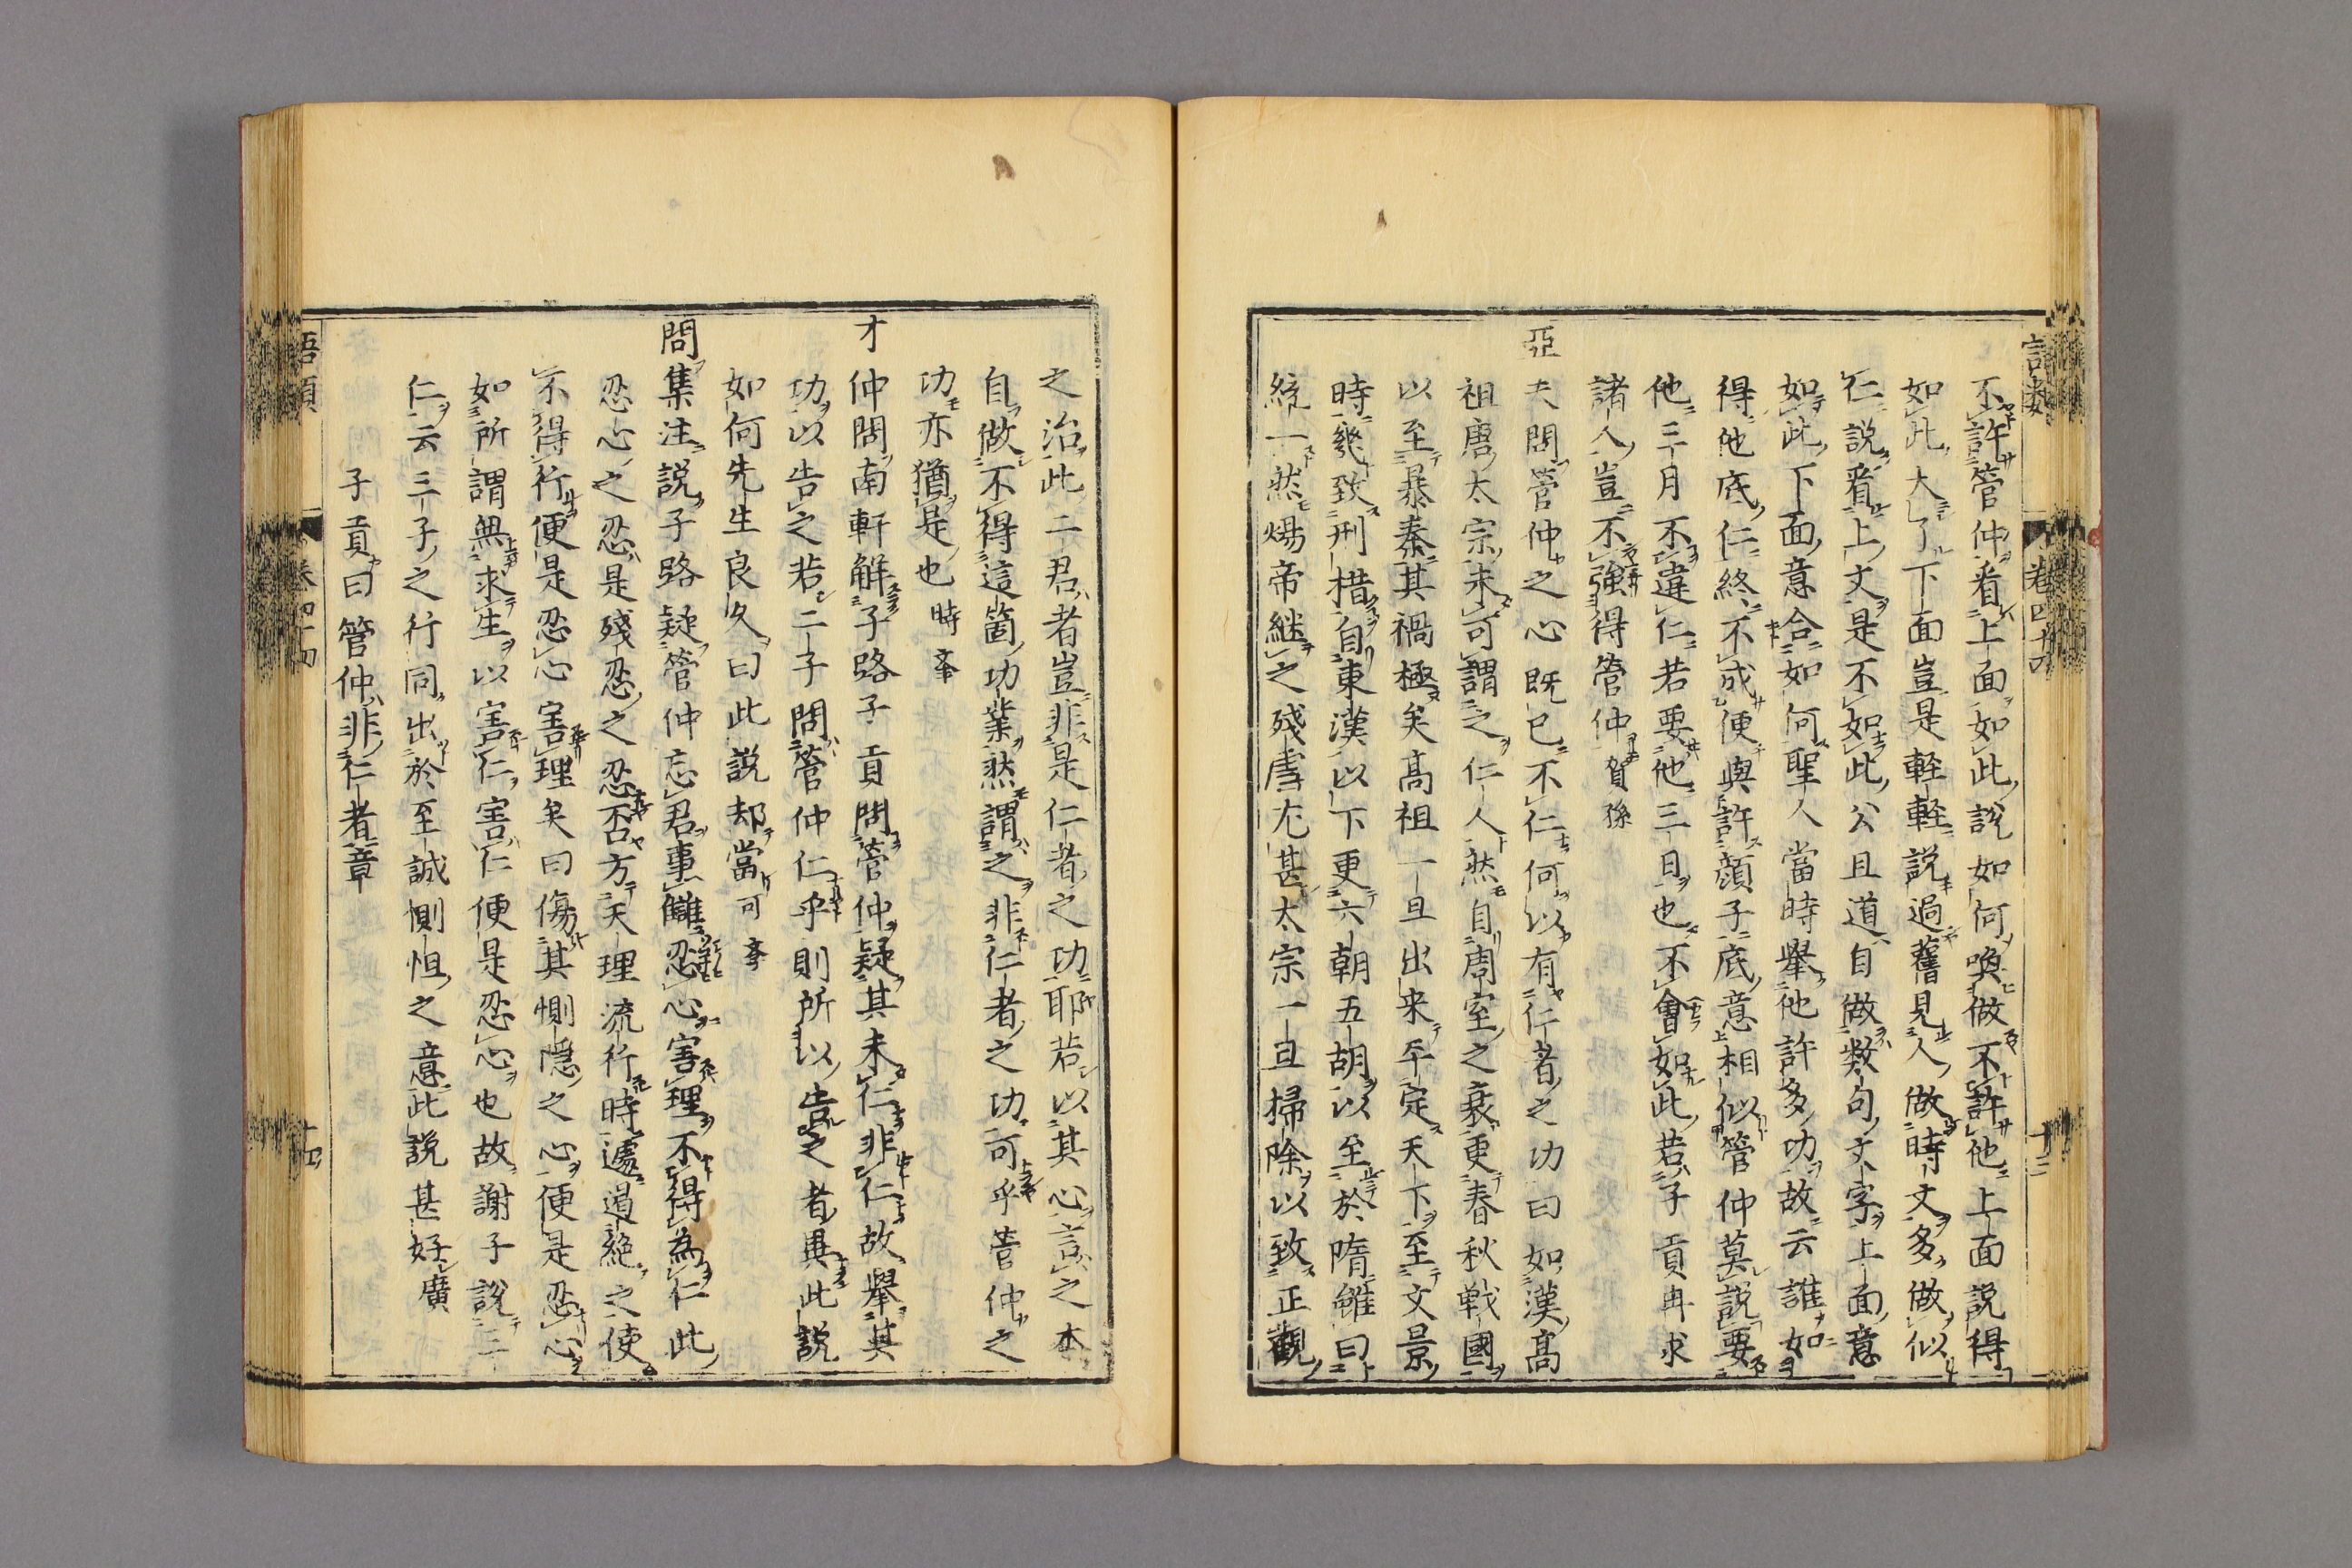 語類 卷四十四 十三
不許管仲看上面如此說如何喚做不許他上面說得
如此大了下面豈是輕輕說過舊見人做時文多做似
仁說看上文是不如此公且道自做数句文字上面意
如此下面意合如何聖人當時舉他許多功故云誰如
得他底仁終不成便與許顔子底意相似管仲莫說要
他三月不違仁若要他三日也不會如此若子貢冉求
諸人豈不強得管仲賀孫
亞夫問管仲之心既已不仁何以有仁者之功曰如漢高
祖唐太宗未可謂之仁人然自周室之衰更春秋戦國
以至暴秦其禍極矣高祖一旦出来平定天下至文景
時幾致刑措自東漢以下更六朝五胡以至於隋雖曰
統一然煬帝継之殘虐尤甚太宗一旦掃除以致正觀
之治此二君者豈非是仁者之功耶若以其心言之本
自做不得這箇功業然謂之非仁者之功可乎管仲之
功亦猶是也時舉
才仲問南軒解子路子貢問管仲疑其未仁非仁故舉其
功以告之若二子問管仲仁乎則所以告之者異此說
如何先生良久曰此說却當可學
問集注說子路疑管仲忘君事讎忍心害理不得為仁此
忍心之忍是殘忍之忍否方天理流行時遽遏絕之使
不得行便是忍心害理矣曰傷其惻隱之心便是忍心
如所謂無求生以害仁害仁便是忍心也故謝子說三
仁云三子之行同出於至誠惻怛之意此說甚好廣
子貢曰管仲非仁者章
語類 卷四十四 十四